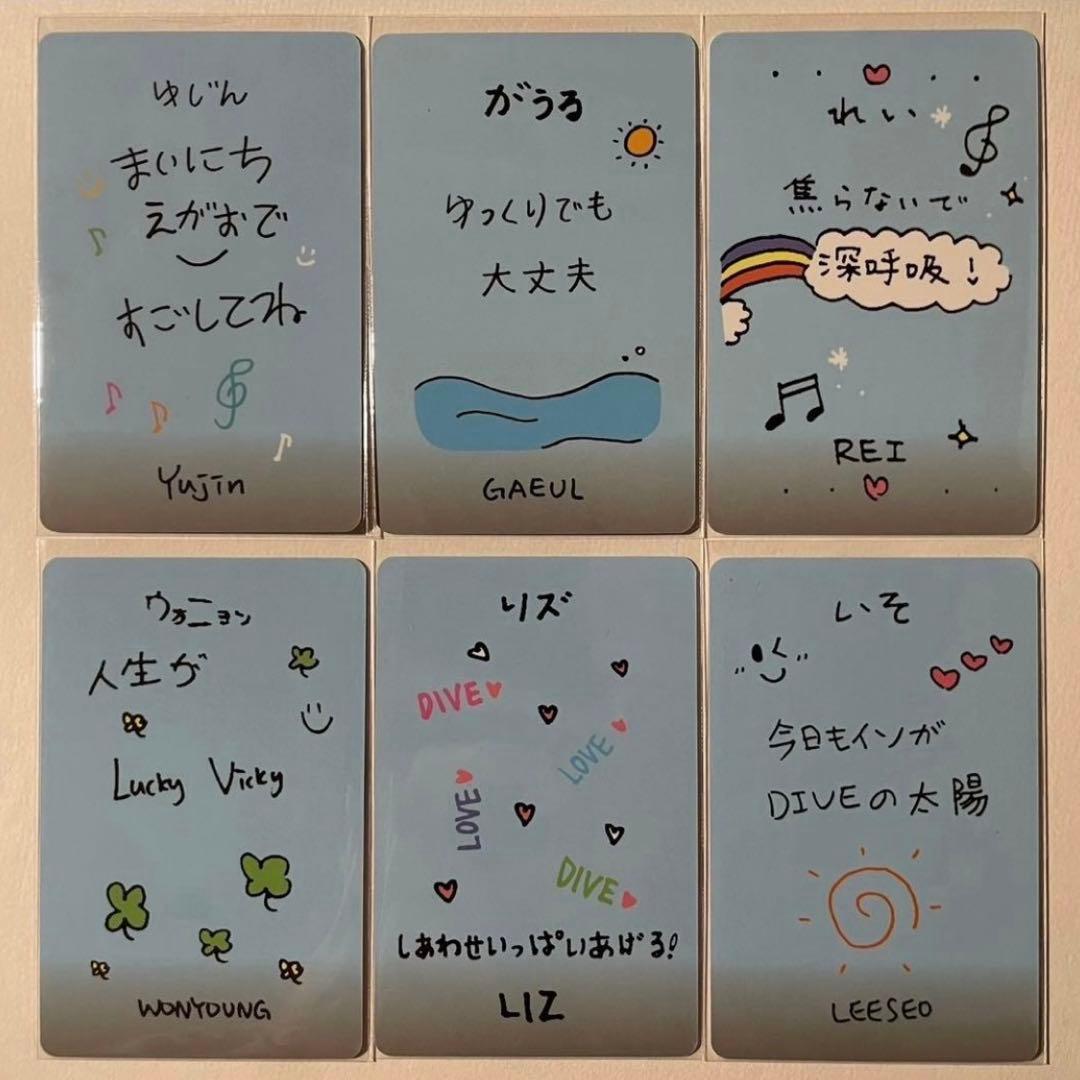 ゆじん
まいにち
えがおで
すごしてね
Yujin
がうる
ゆっくりでも
大丈夫
GAEUL
れい
焦らないで
深呼吸!
REI
ウォニョン
人生が
Lucky Vicky
WONYOUNG
リズ
DIVE
LOVE
LOVE
DIVE
しあわせいっぱいあげる!
LIZ
いそ
今日もイソが
DIVEの太陽
LEESEO